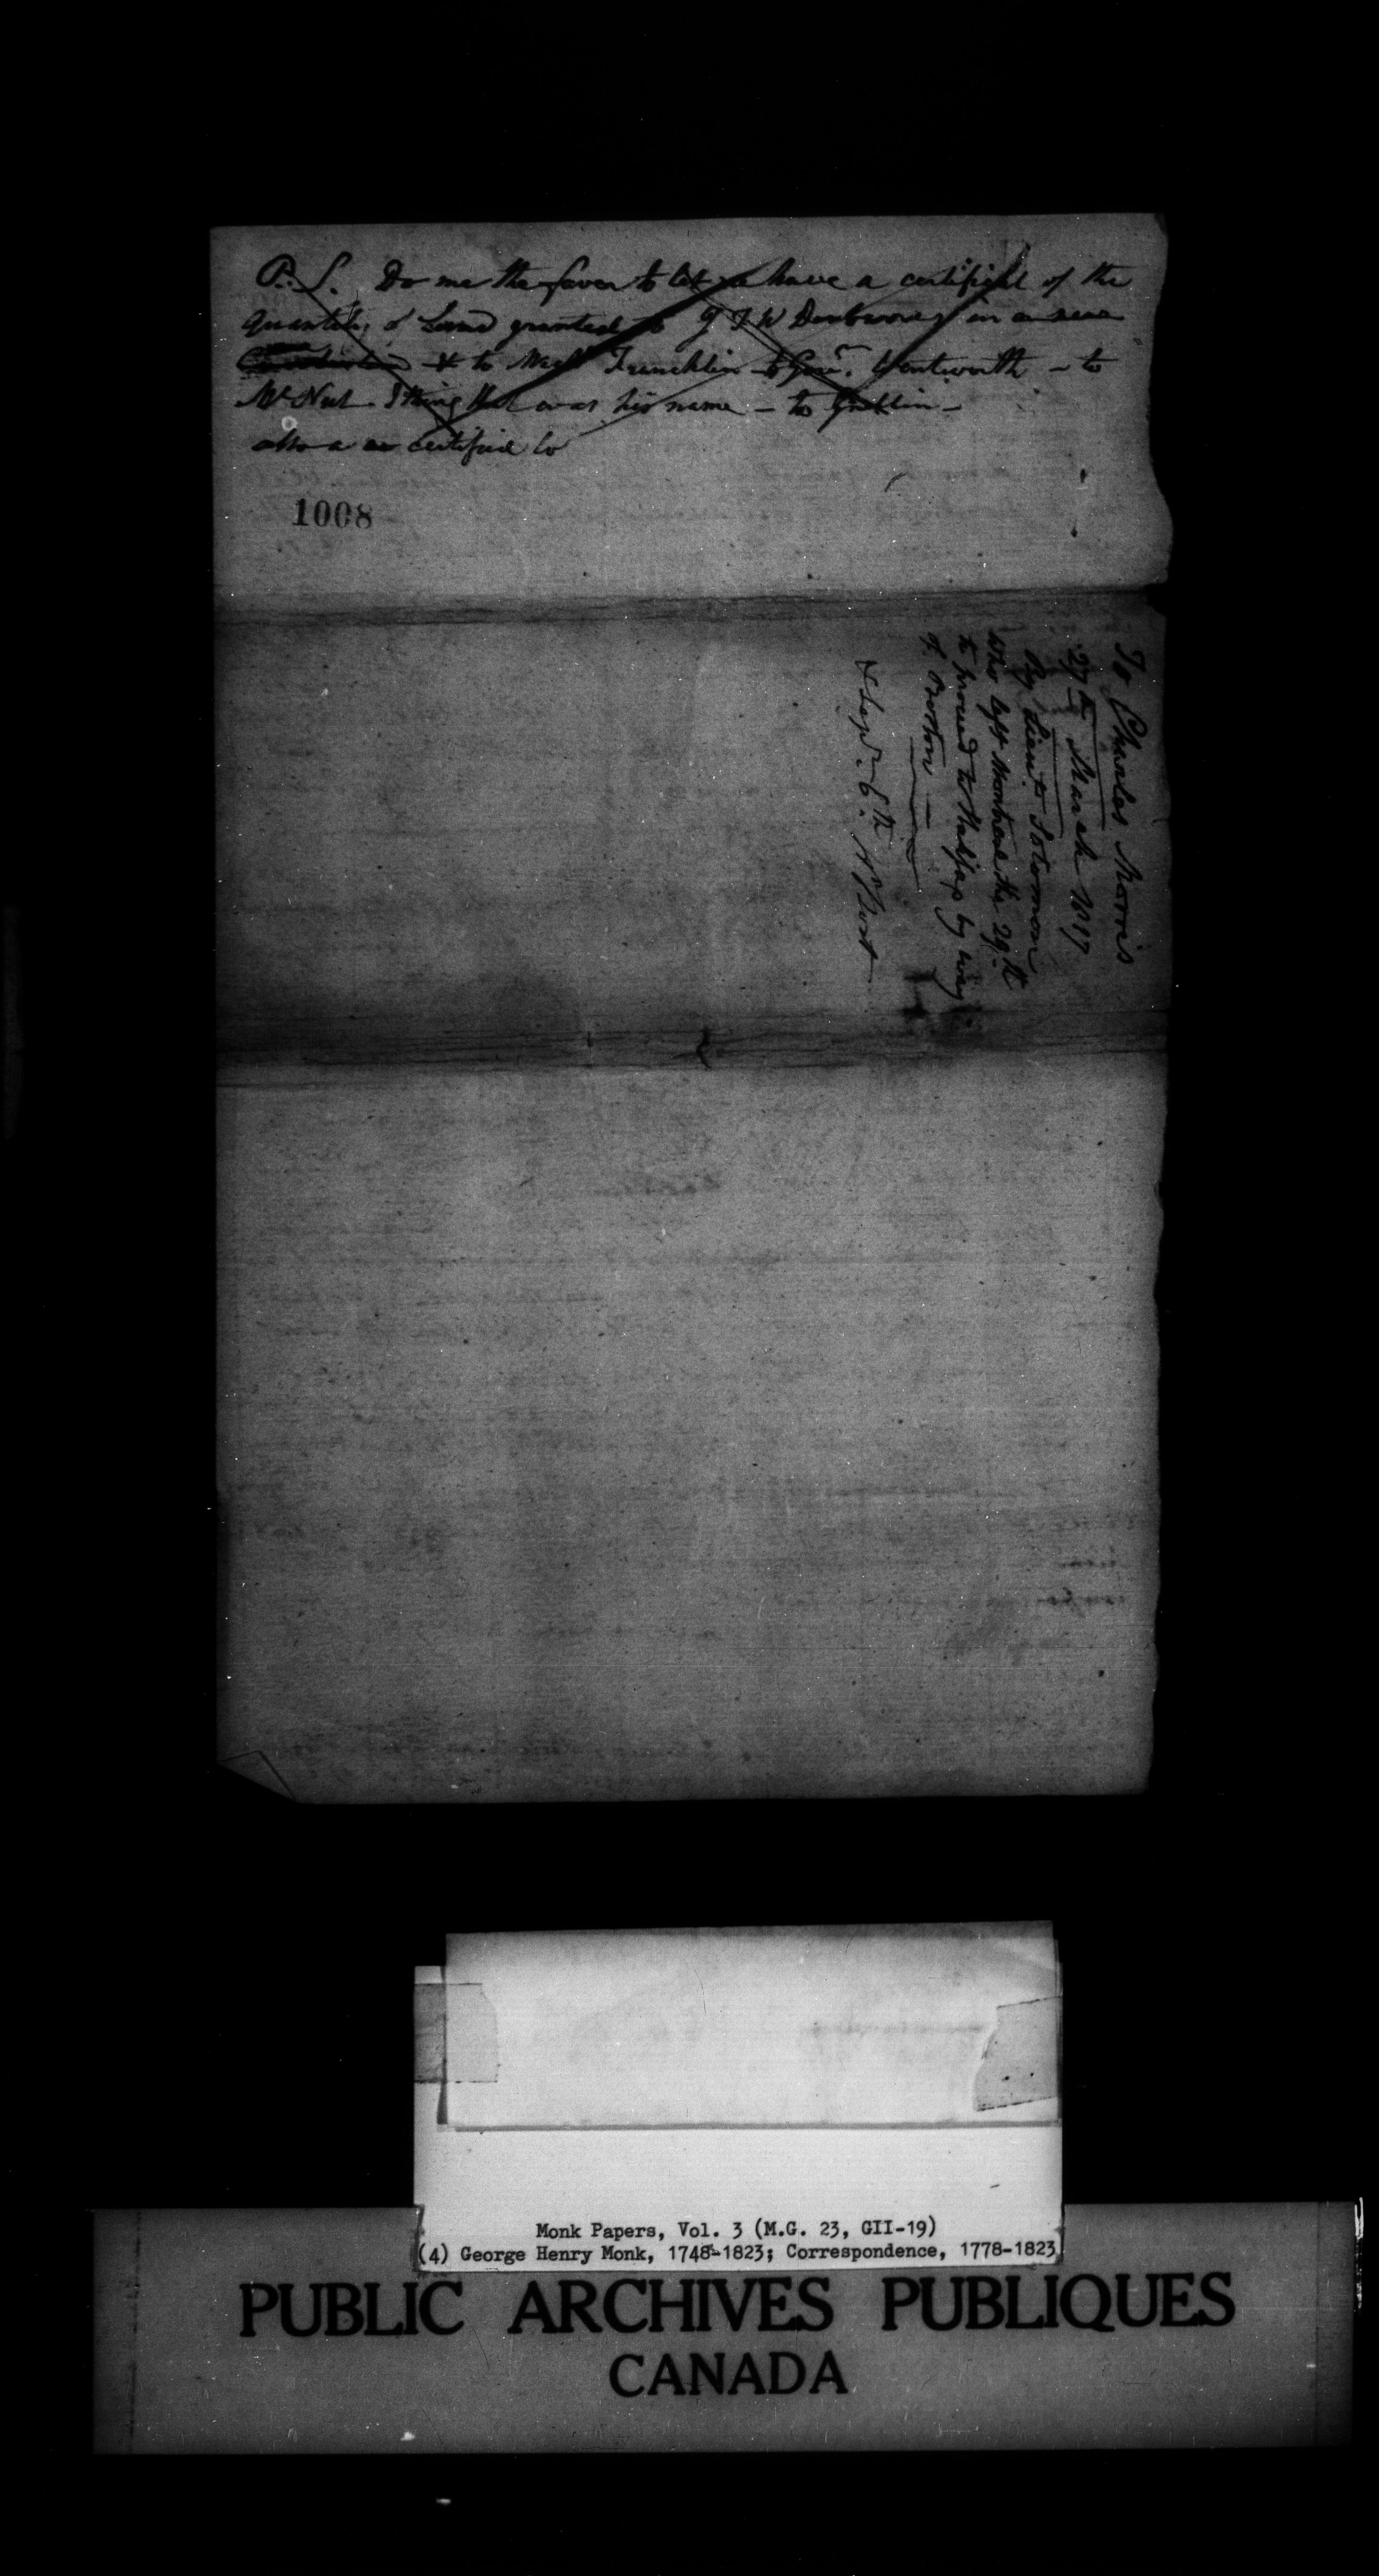 P.S. Do me the favor to let me have a certificate of the
quantity of Land granted to J F W Desbarres in
& to Mich. Francklin to Govr. Wentworth - to
Mc Nut I thing that was his name - to
also a certified Co
1008
To Charles Morris
27th March 1817
By Lieut Solomon
who left Montreal the 29th
to proceed to Halifax by way
of Boston
& Sepr. 6th Pr Post
Monk Papers, Vol. 3 (M.G. 23, GII-19)
(4) George Henry Monk, 1748-1823; Correspondence, 1778-1823
PUBLIC ARCHIVES PUBLIQUES
CANADA